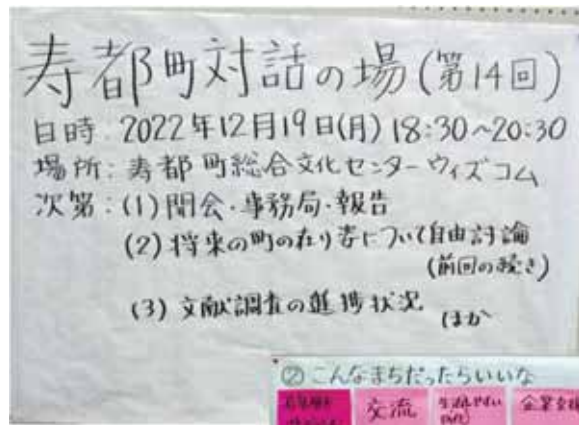 寿都町対話の場(第14回)
日時:2022年12月19日(月) 18:30~20:30
場所:寿都町総合文化センターウィズコム
次第:(1)開会・事務局・報告
(2)将来の町の在り姿について自由討論
(前回の続き)
(3)文献調査の進捗状況
ほか
②こんなまちだったらいいな
交流
生活しやすい
企業